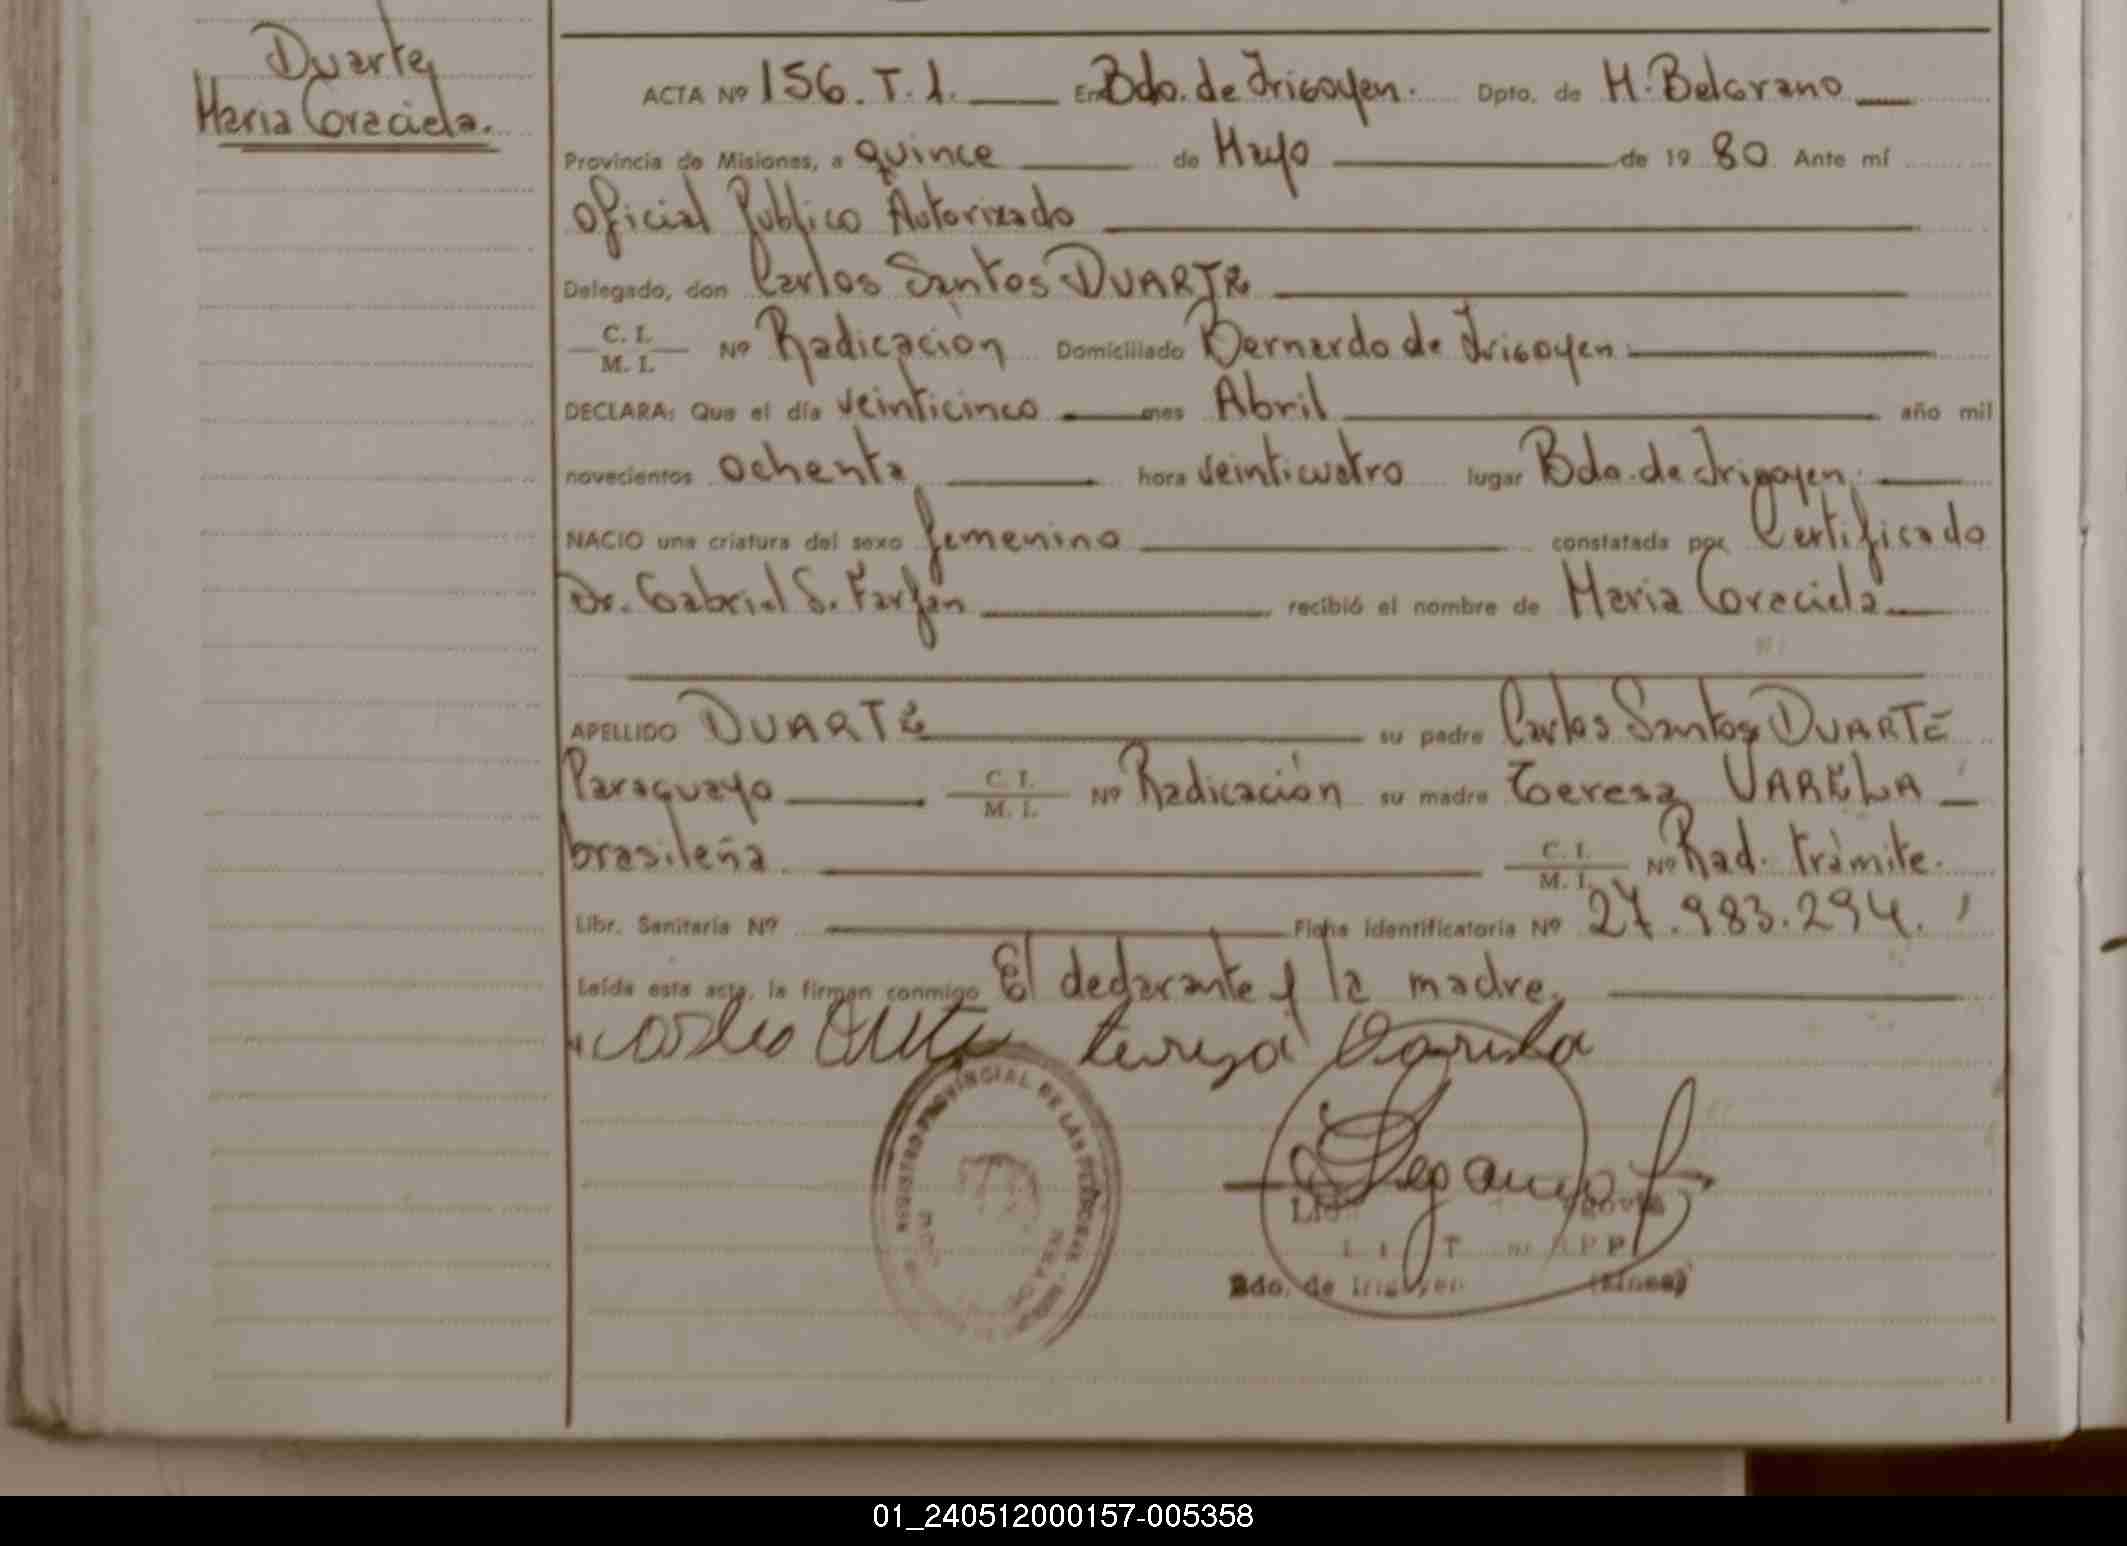 Duarte
Maria Graciela.
ACTA Nº 156. T. 1. En Bdo. de Irigoyen. Dpto. de M. Belgrano
Provincia de Misiones, a quince de Mayo de 19 80 Ante mí
Oficial Publico Autorizado
Delegado, don Carlos Santos DUARTE
C. I.
M. I. Nº Radicación Domiciliado Bernardo de Irigoyen
DECLARA: Que el día veinticinco mes Abril año mil
novecientos ochenta hora veinticuatro lugar Bdo. de Irigoyen.
NACIO una criatura del sexo femenino constatada por Certificado
Dr. Gabriel S. Farfan recibió el nombre de Maria Graciela
APELLIDO DUARTE su padre Carlos Santos DUARTE
Paraguayo C. I. M. I. Nº Radicación su madre Teresa VARELA
brasileña C. I. M. I. Nº Rad. trámite.
Libr. Sanitaria Nº Ficha identificatoria Nº 27.983.294.
Leída esta acta, la firman conmigo El declarante y la madre.
teresa Varela
PROVINCIAL DE LAS PERSONAS
Bdo. de Irigoyen (Mnes)
01_240512000157-005358